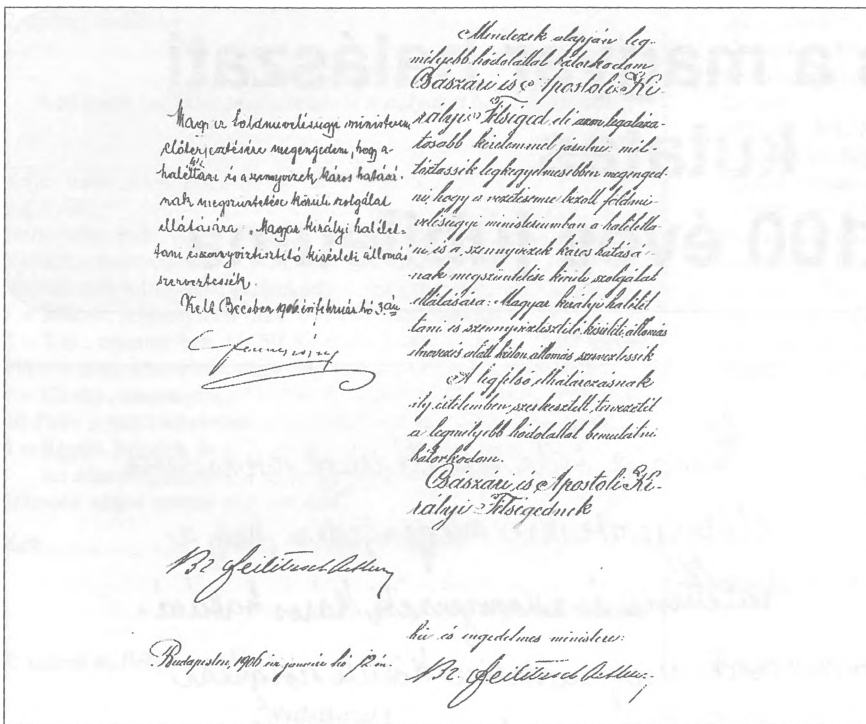 Magy. kir. földmívelésügyi ministerem
előterjesztésére megengedem, hogy a
halélettani és a szennyvizek káros hatásá-
nak megszüntetése körüli szolgálat
ellátására "Magyar királyi halélet-
tani és szennyvíztisztító kisérleti állomás
szerveztessék.
Kelt Bécsben 1906 évi február hó 3án
Mindezek alapján leg-
mélyebb hódolattal bátorkodom
Császári és Apostoli Ki-
rályi Felséged elé azon legaláza-
tosabb kérelemmel járulni: mél-
tóztassék legkegyelmesebben megenged-
ni, hogy a vezetésemre bízott földmí-
velésügyi ministeriumban a halélettani
és a szennyvizek káros hatásá-
nak megszüntetése körüli szolgálat
ellátására: Magyar királyi halélet
tani és szennyvíztisztító kisérleti állomás
elnevezés alatt külön állomás szerveztessék
A legfelső elhatározásnak
ily értelemben szerkesztett tervezetét
a legmélyebb hódolattal bemutatni
bátorkodom.
Császári és Apostoli Ki-
rályi Felségednek
Br Feilitzsch Arthur
Budapesten, 1906 évi január hó 12 én.
hív és engedelmes ministere:
Br. Feilitzsch Arthur
100 év